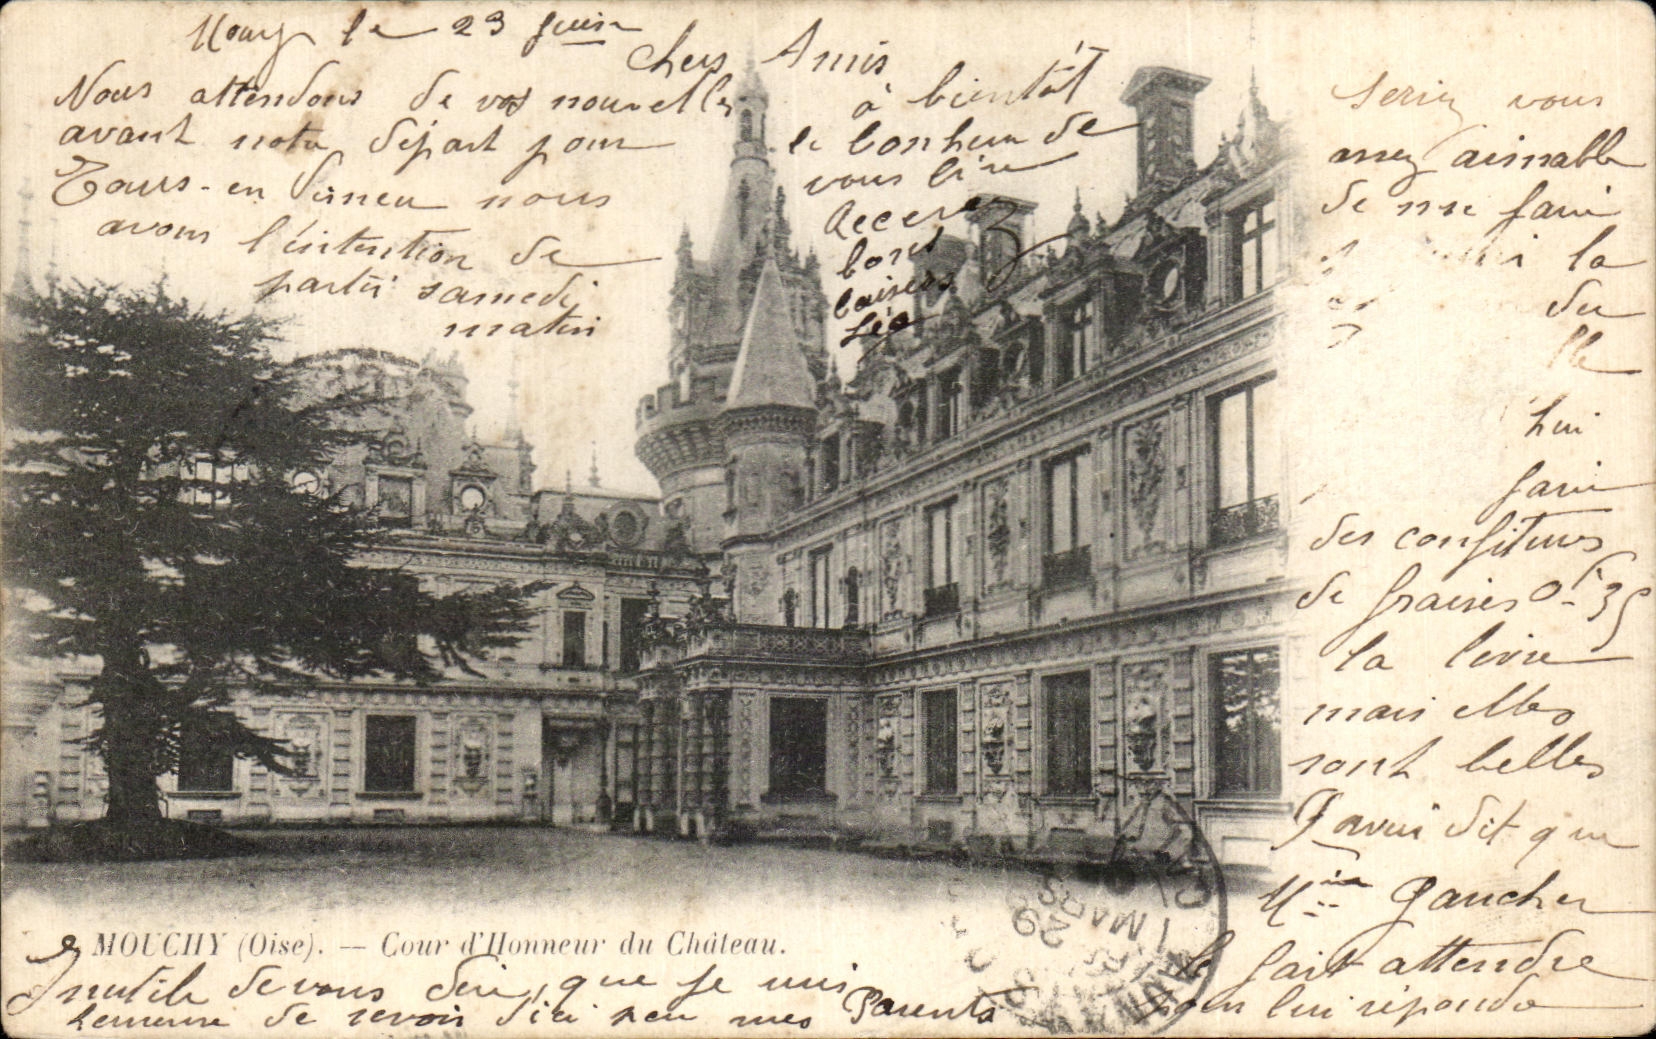 Mouy le 23 juin
Chers Amis
Nous attendons de vos nouvelles
avant notre départ pour
Tours-en Vimeu nous
avons l'intention de
partir samedi
matin
à bientôt
le bonheur de
vous lire
Recevez
bons
baisers
Seriez vous
assez aimable
de me faire
la
du
lui
faire
des confitures
de fraises 0f35
la livre
mais elles
sont belles
J'avais dit que
Gaucher
le fait attendre
pour lui répondre
MOUCHY (Oise). — Cour d'Honneur du Château.
Inutile de vous dire, que je suis
heureuse de revoir d'ici peu mes Parents